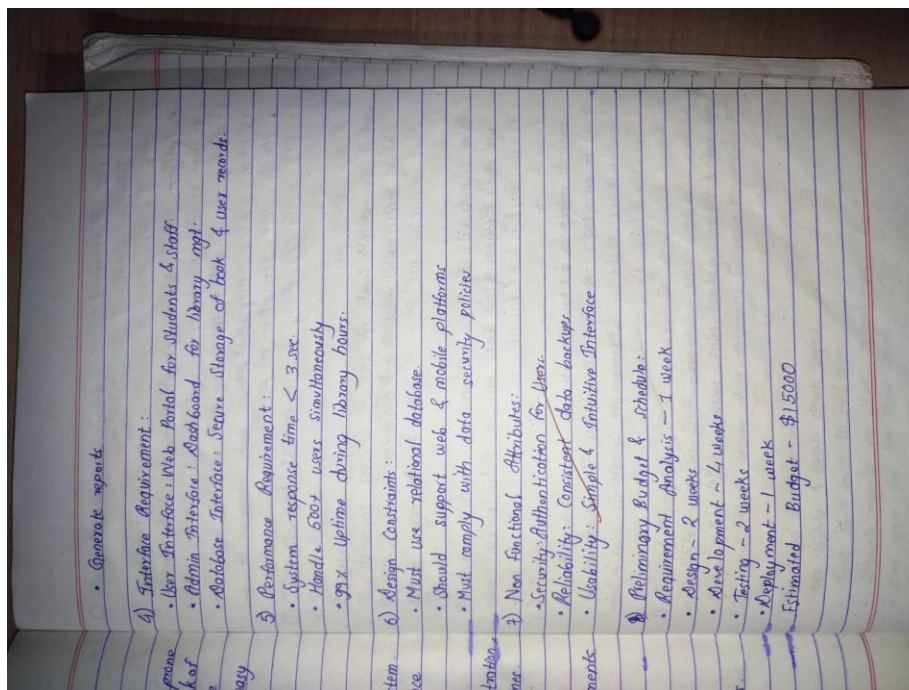 • Generate reports
4) Interface Requirement :
• User Interface : Web Portal for students & staff.
• Admin Interface : Dashboard for library mgt.
• Database Interface : Secure Storage of book & user records.
5) Performance Requirement :
• System response time < 3 sec.
• Handle 500+ users simultaneously
• 99% Uptime during library hours.
6) Design Constraints :
• Must use relational database.
• Should support web & mobile platforms
• Must comply with data security policies
7) Non Functional Attributes :
• Security : Authentication for Users.
• Reliability : Consistent data backups
• Usability : Simple & Intuitive Interface
8) Preliminary Budget & Schedule :
• Requirement Analysis - 1 week
• Design - 2 weeks
• Development - 4 weeks
• Testing - 2 weeks
• Deployment - 1 week
Estimated Budget - $15000
prone
k of
easy
tem.
ce
tration
mer
ments